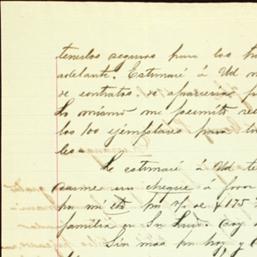 tenerlos seguros para los
adelante. Estimaré á Ud
de contratos de aparcería
Lo mismo me permito
los 100 ejemplares para
les.
Le estimaré á Ud
un cheque á favor
por mi cta por v/ de $175
familia en Sn Luis
Sin mas por hoy y